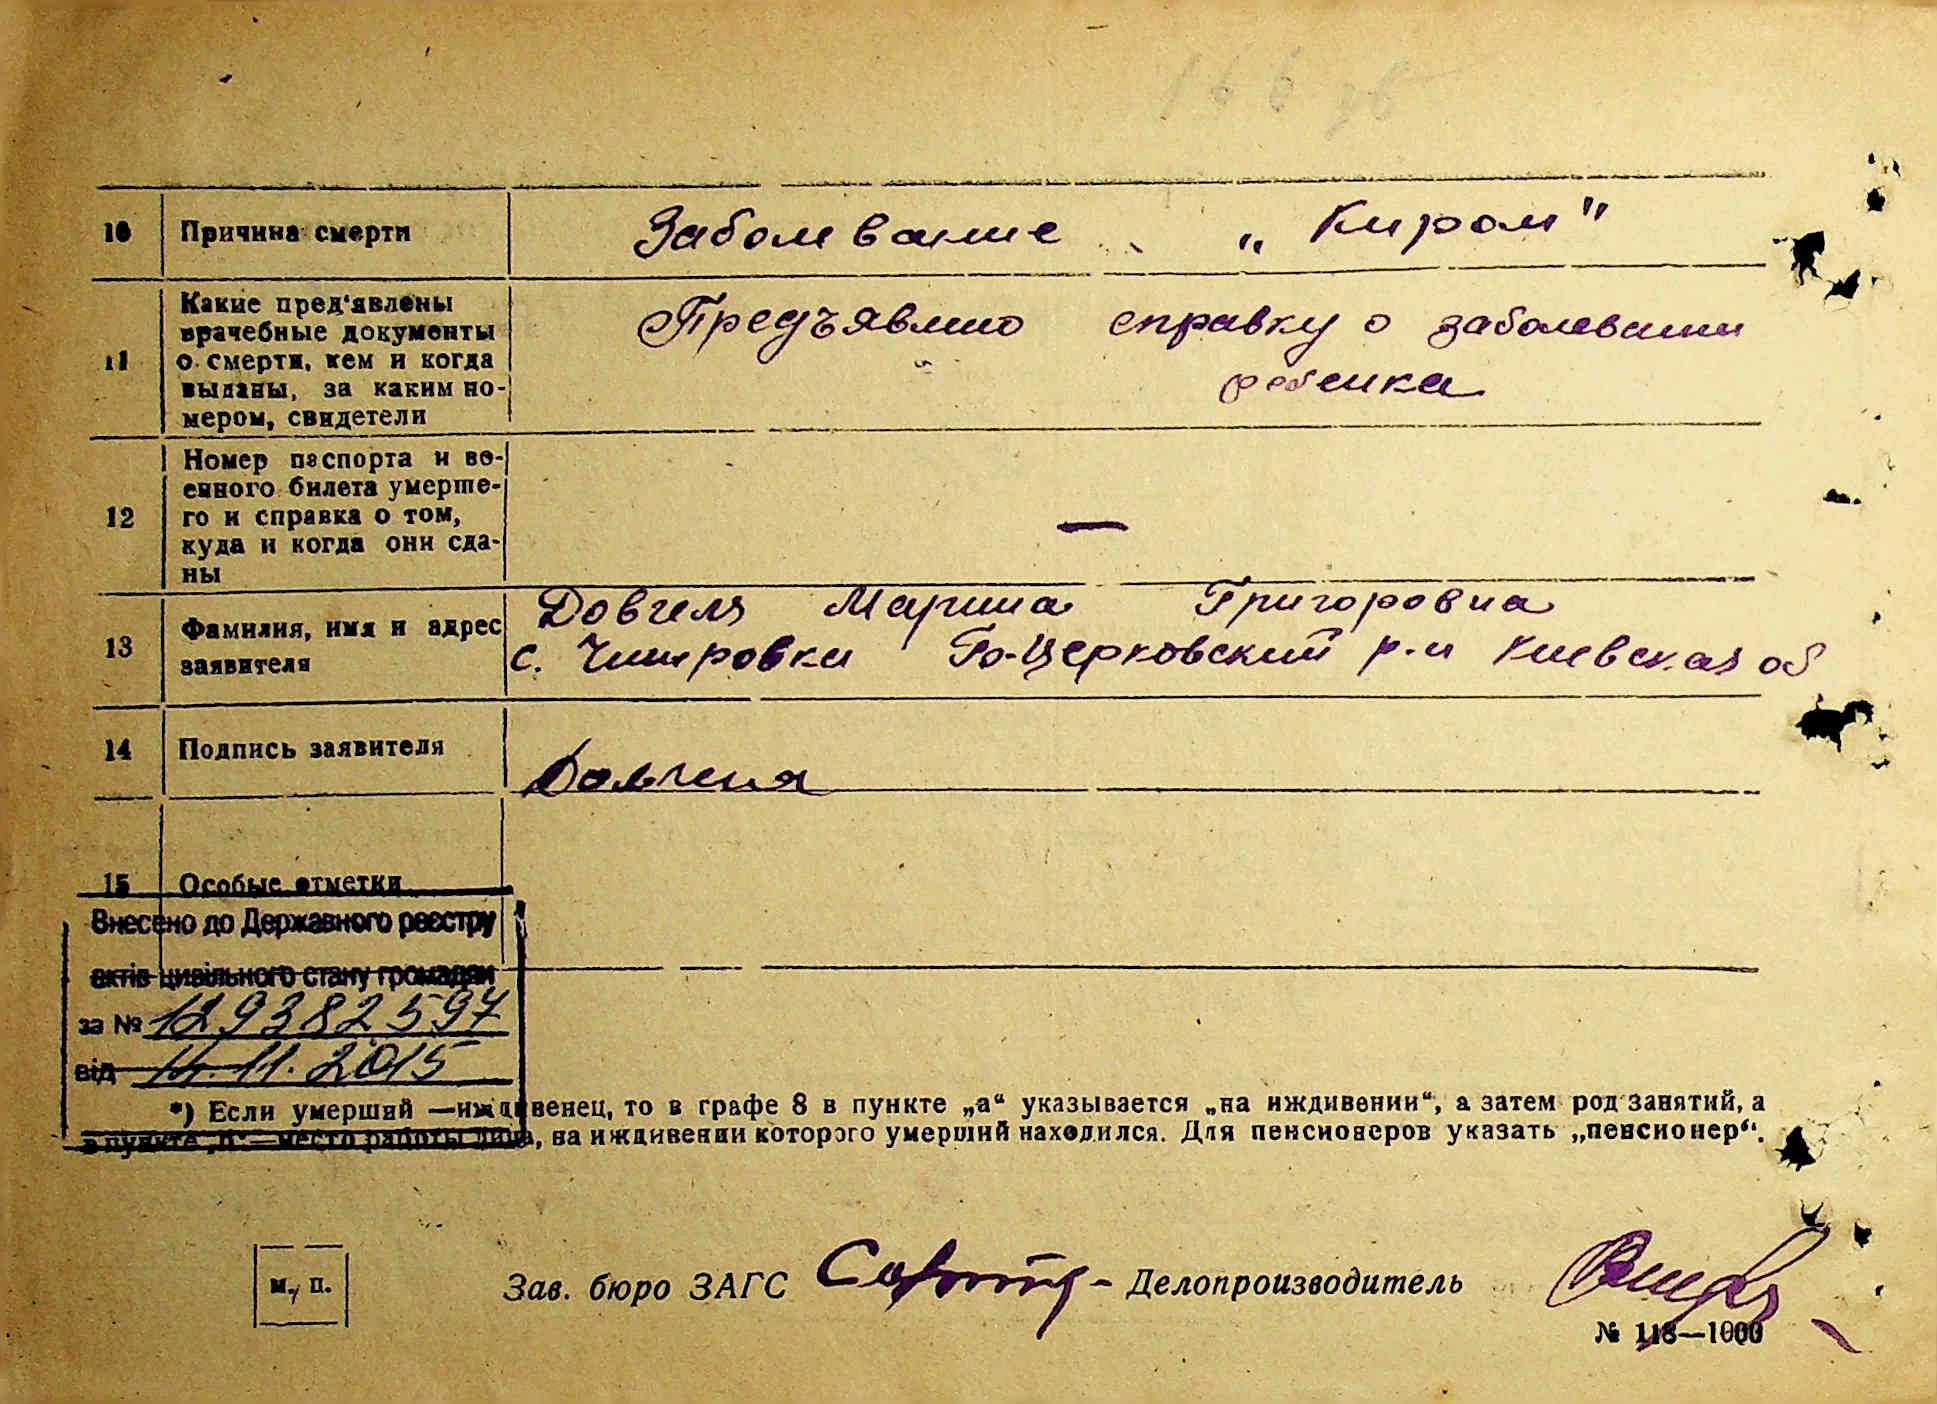 10 Причина смерти Заболевание „Киром"
11 Какие пред'явлены
врачебные документы
о смерти, кем и когда
выданы, за каким но-
мером, свидетели
Предъявлено справку о заболевании
ребенка
12 Номер паспорта и во-
енного билета умерше-
го и справка о том,
куда и когда они сда-
ны
—
13 Фамилия, имя и адрес
заявителя
Довгеля Марина Григоровна
с. Чупировка Бо-Церковский р-н Киевская об
14 Подпись заявителя Довгеля
15 Особые отметки
Внесено до Державного реєстру
актів цивільного стану громадян
за № 129382597
від 11.2015
*) Если умерший —иждивенец, то в графе 8 в пункте „а“ указывается „на иждивении“, а затем род занятий, а
в пункте „б“— место работы лица, на иждивении которого умерший находился. Для пенсионеров указать „пенсионер“.
м. п. Зав. бюро ЗАГС Делопроизводитель
№ 118—1000